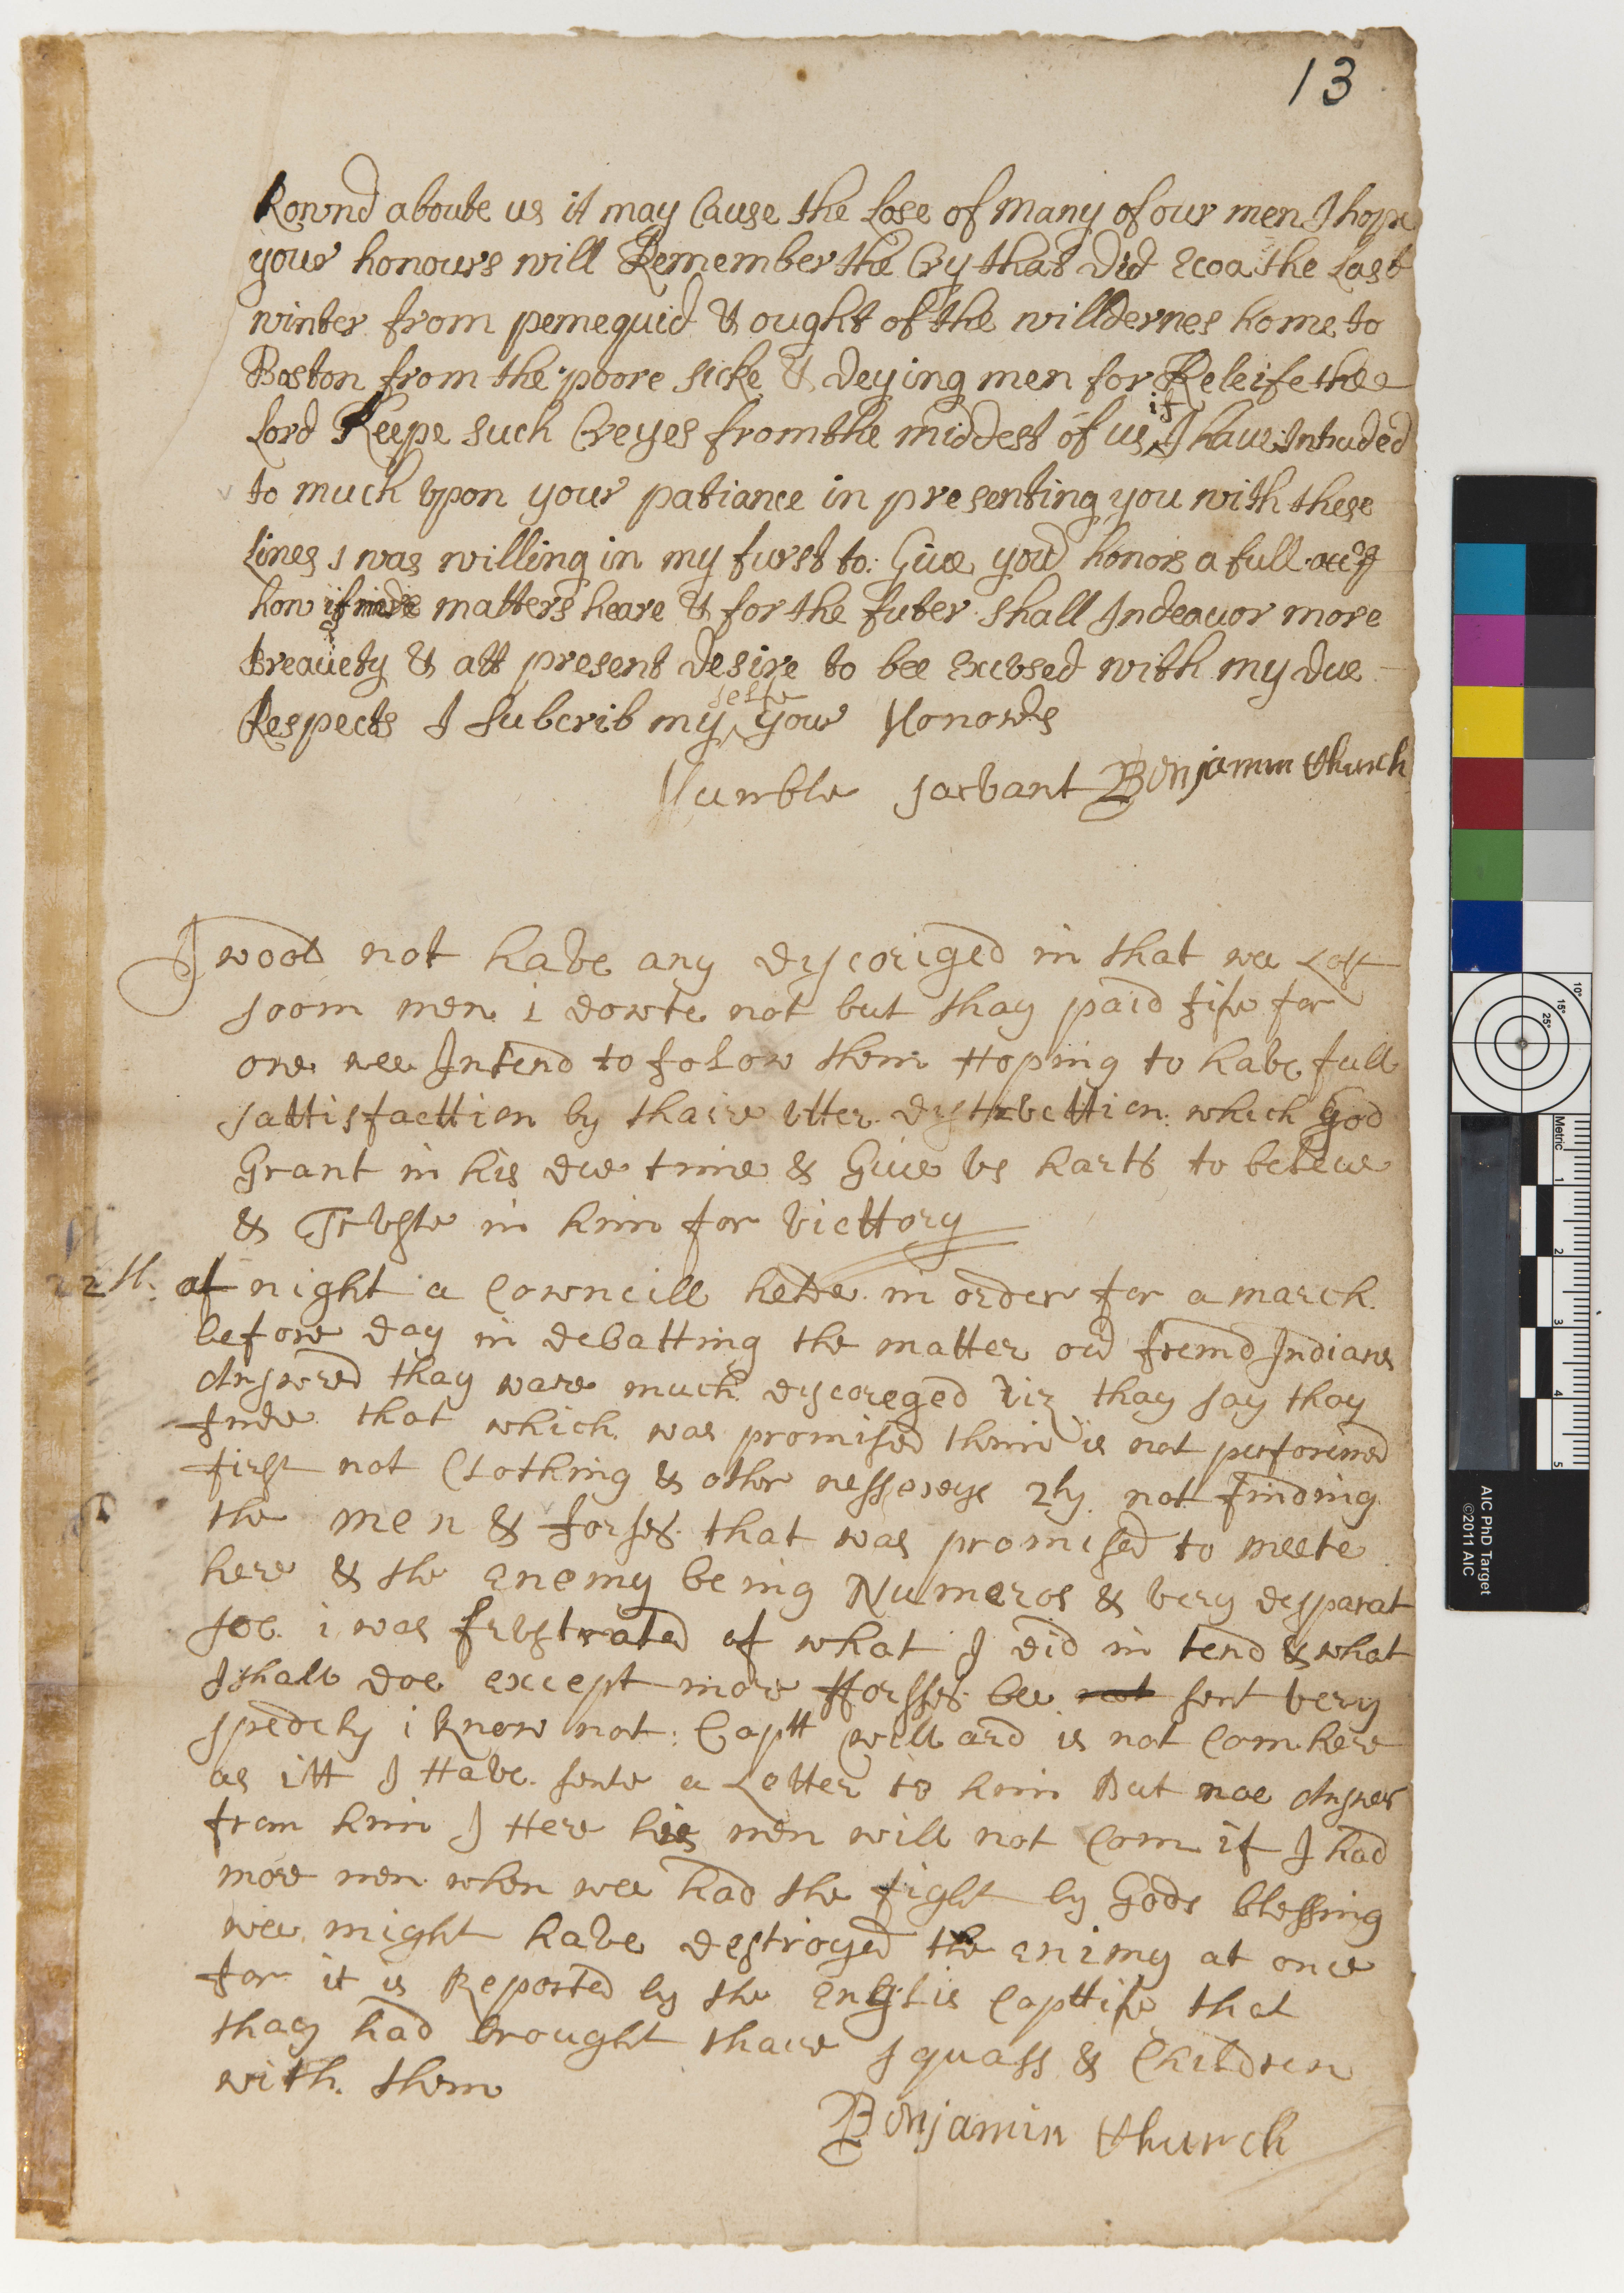 13
Rownd aboute us it may Cause the Lose of Many of our men I hope
your honours will Remember the Cry that Did Ecoa the Last
winter from pemequid & ought of the willdernes home to
Boston from the poore sicke & Deying men for Releife the
Lord Keepe such Creyes from the middest of us if I haue Intruded
to much vpon your patiance in presenting you with these
Lines I was willing in my furst to Giue your honors a full acct
how matters heare & for the futer shall Indeauor more
breauety & att present Desire to bee Excused with my Due
Respects I Subcrib my selfe your Honours
Humble sarvant Benjamin Church
I wood not have any dyscoriged in that wee Lost
soom men i dowte not but thay paid fife for
one wee Intend to folow them Hoping to have full
sattisfacttion by thaire vtter dystrvcttion which God
Grant in his due time & Giue vs harts to beleue
& Trvste in him for victtory
22th. at night a Cowncill helde in order for a march
before day in debatting the matter our freind Indians
Answred thay ware much dyscoreged viz thay say thay
finde that which was promised them is not performed
first not Clothing & other nesserys 2ly not finding
the men & horses that was promised to meete
here & the enemy being Numeros & very desparat
soe i was frvstrated of what I did in tend & what
I shall doe except more Horsses bee not sent very
spedely i know not: Captt willard is not Com here
as itt I Have sente a Letter to him But noe Answer
from him I Here his men will not Com if I had
more men when wee had the fight by Gods blessing
wee might have destroyed the enimy at once
for it is Reported by the Englis Capttife that
thay had brought thare squass & Children
with them
Benjamin Church
Metric
1
2
3
4
5
10°
15°
25°
AIC PhD Target
©2011 AIC